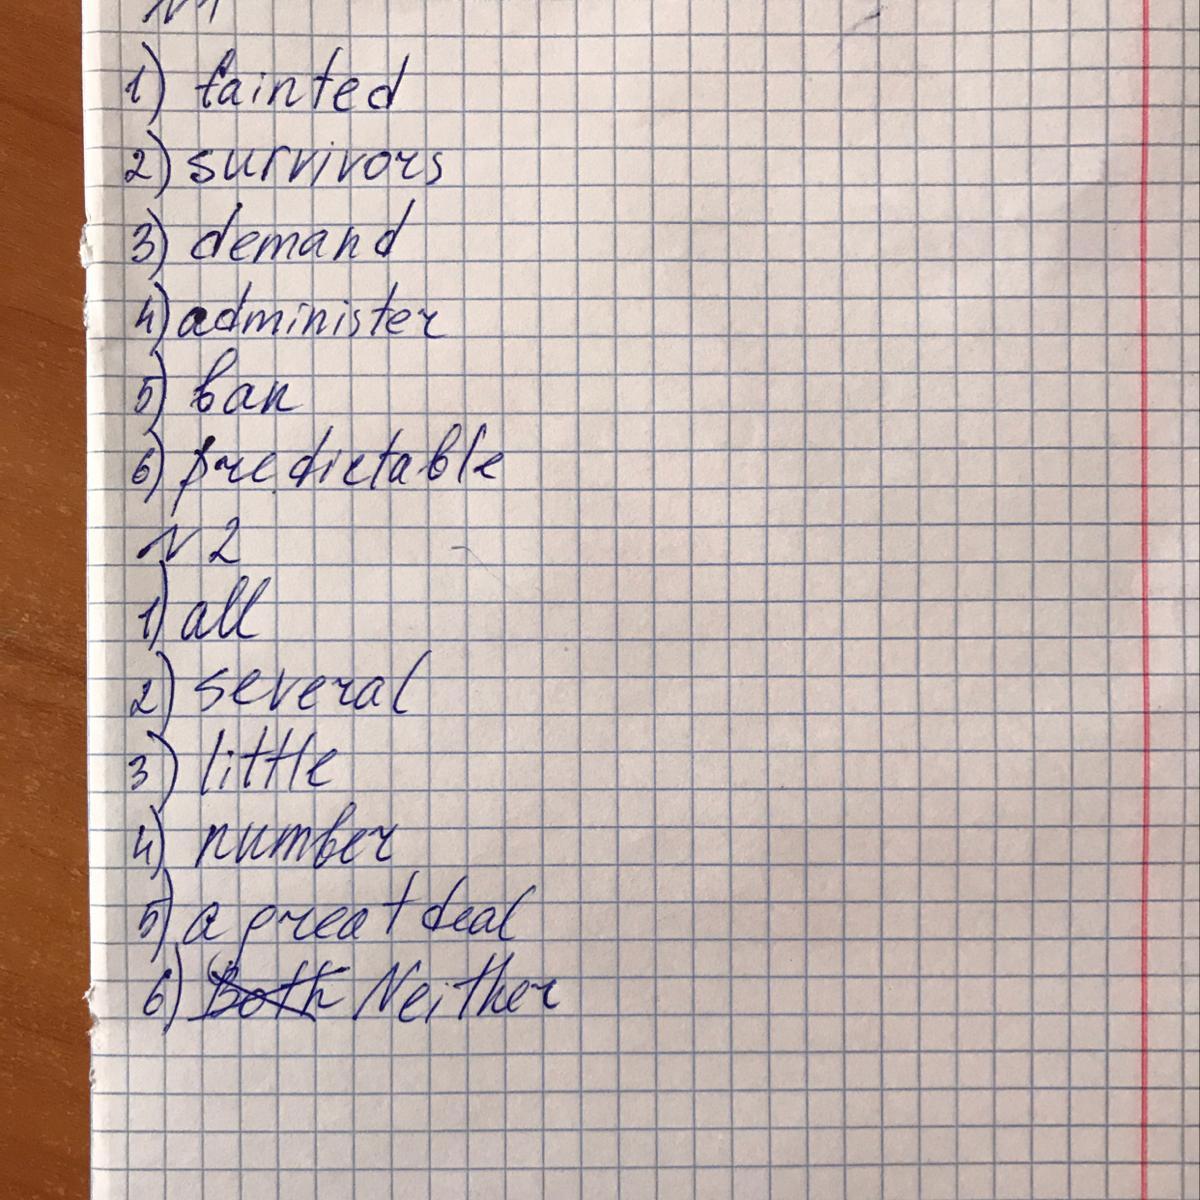 N1
1) fainted
2) survivors
3) demand
4) administer
5) ban
6) predictable
N2
1) all
2) several
3) little
4) number
5) a great deal
6) Both Neither